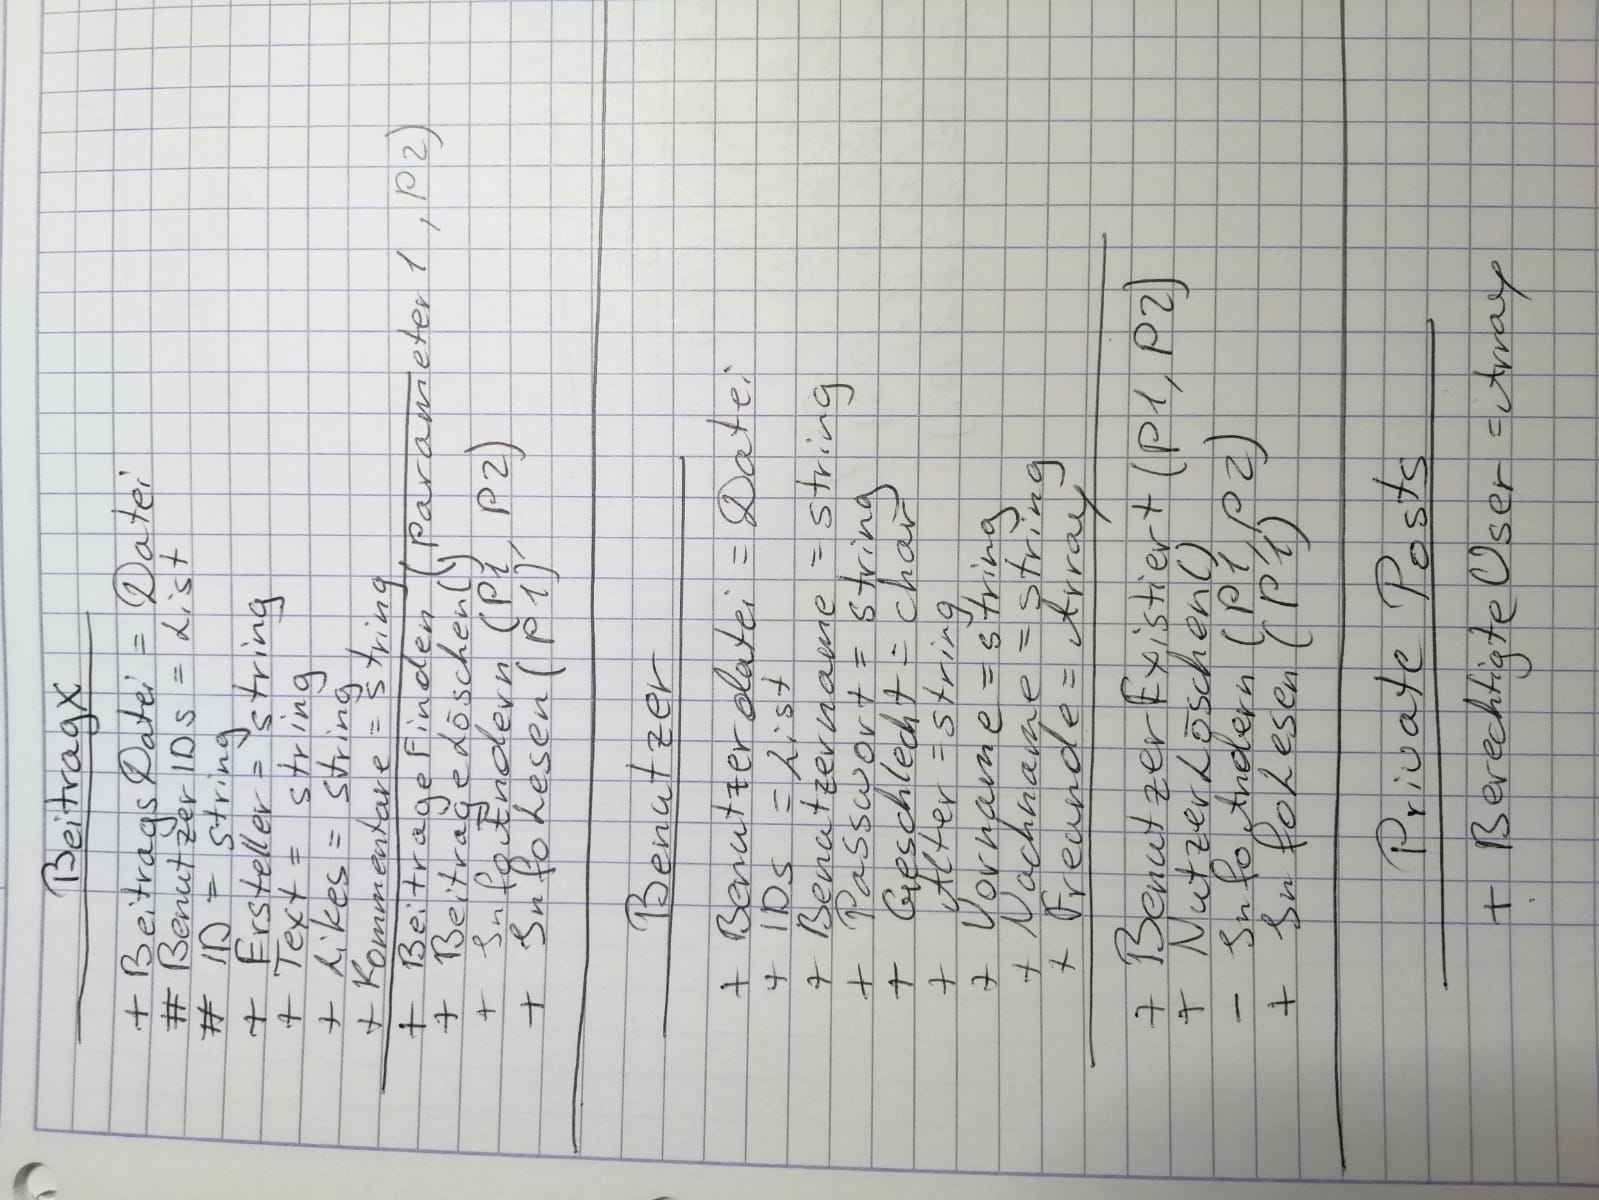 BeitragX
+ BeitragsDatei = Datei
# BenutzerIDs = List
# ID = string
+ Ersteller = string
+ Text = string
+ Likes = string
+ Kommentare = string
+ BeitrageFinden (parameter1, P2)
+ BeitrageLöschen()
+ InfoÄndern (P1, P2)
+ InfoLesen (P1)
Benutzer
+ Benutzerdatei = Datei
+ IDs = List
+ Benutzername = string
+ Passwort = string
+ Geschlecht = char
+ Alter = string
+ Vorname = string
+ Nachname = string
+ Freunde = Array
+ BenutzerExistiert (P1, P2)
+ NutzerLöschen()
- InfoÄndern (P1, P2)
+ InfoLesen (P1)
Private Posts
+ BerechtigteUser = Array